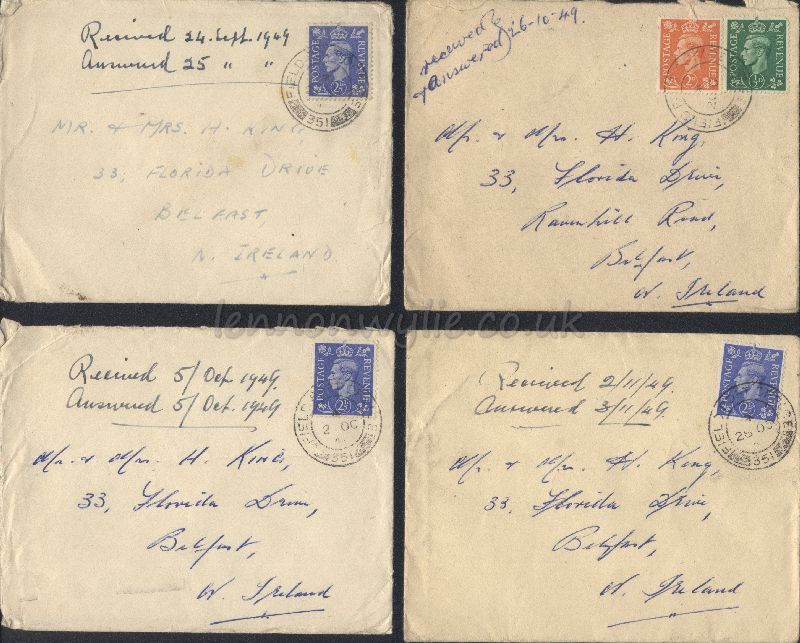 Received 24. Sept. 1949
Answered 25 " "
POSTAGE REVENUE
2½D
FIELD
351
MR. & MRS. H. KING
33, FLORIDA DRIVE
BELFAST,
N. IRELAND.
received &
answered 26-10-49.
POSTAGE REVENUE
2D
POSTAGE REVENUE
FIELD
Mr. & Mrs. H. King,
33, Florida Drive,
Ravenhill Road,
Belfast,
N. Ireland
lennonwylie.co.uk
Received 5/Oct. 1949.
Answered 5/Oct. 1949
POSTAGE REVENUE
2½D
FIELD
2 OC
351
Mr. & Mrs. H. King,
33, Florida Drive,
Belfast,
N. Ireland
Received 2/11/49.
Answered 3/11/49.
POSTAGE REVENUE
2½D
FIEL
28 OC
351
Mr. & Mrs. H. King,
33, Florida Drive,
Belfast,
N. Ireland